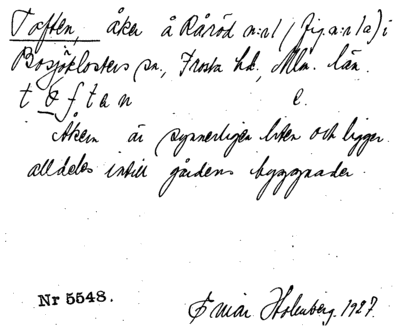 Toften, åker å Råröd n:r 1 (fig. a:r 1a) i
Bosjöklosters sn., Frosta hd., Mlm. län.
t o f t e n e.
Åkern är synnerligen liten och ligger
alldeles intill gårdens byggnader.
Nr 5548.
Einar Holmberg. 1927.